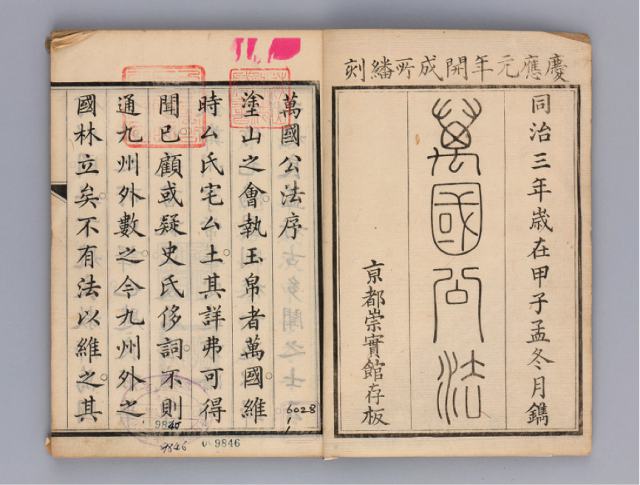 慶應元年開成所繙刻
同治三年歲在甲子孟冬月鐫
萬國公法
京都崇實館存板
萬國公法序
塗山之會執玉帛者萬國維
時厶氏宅厶土其詳弗可得
聞已顧或疑史氏侈詞不則
通九州外數之今九州外之
國林立矣不有法以維之其
6028
1
9845
9846
い 9846